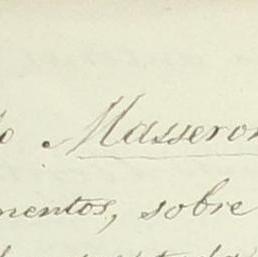 o Masseron
mentos, sobre